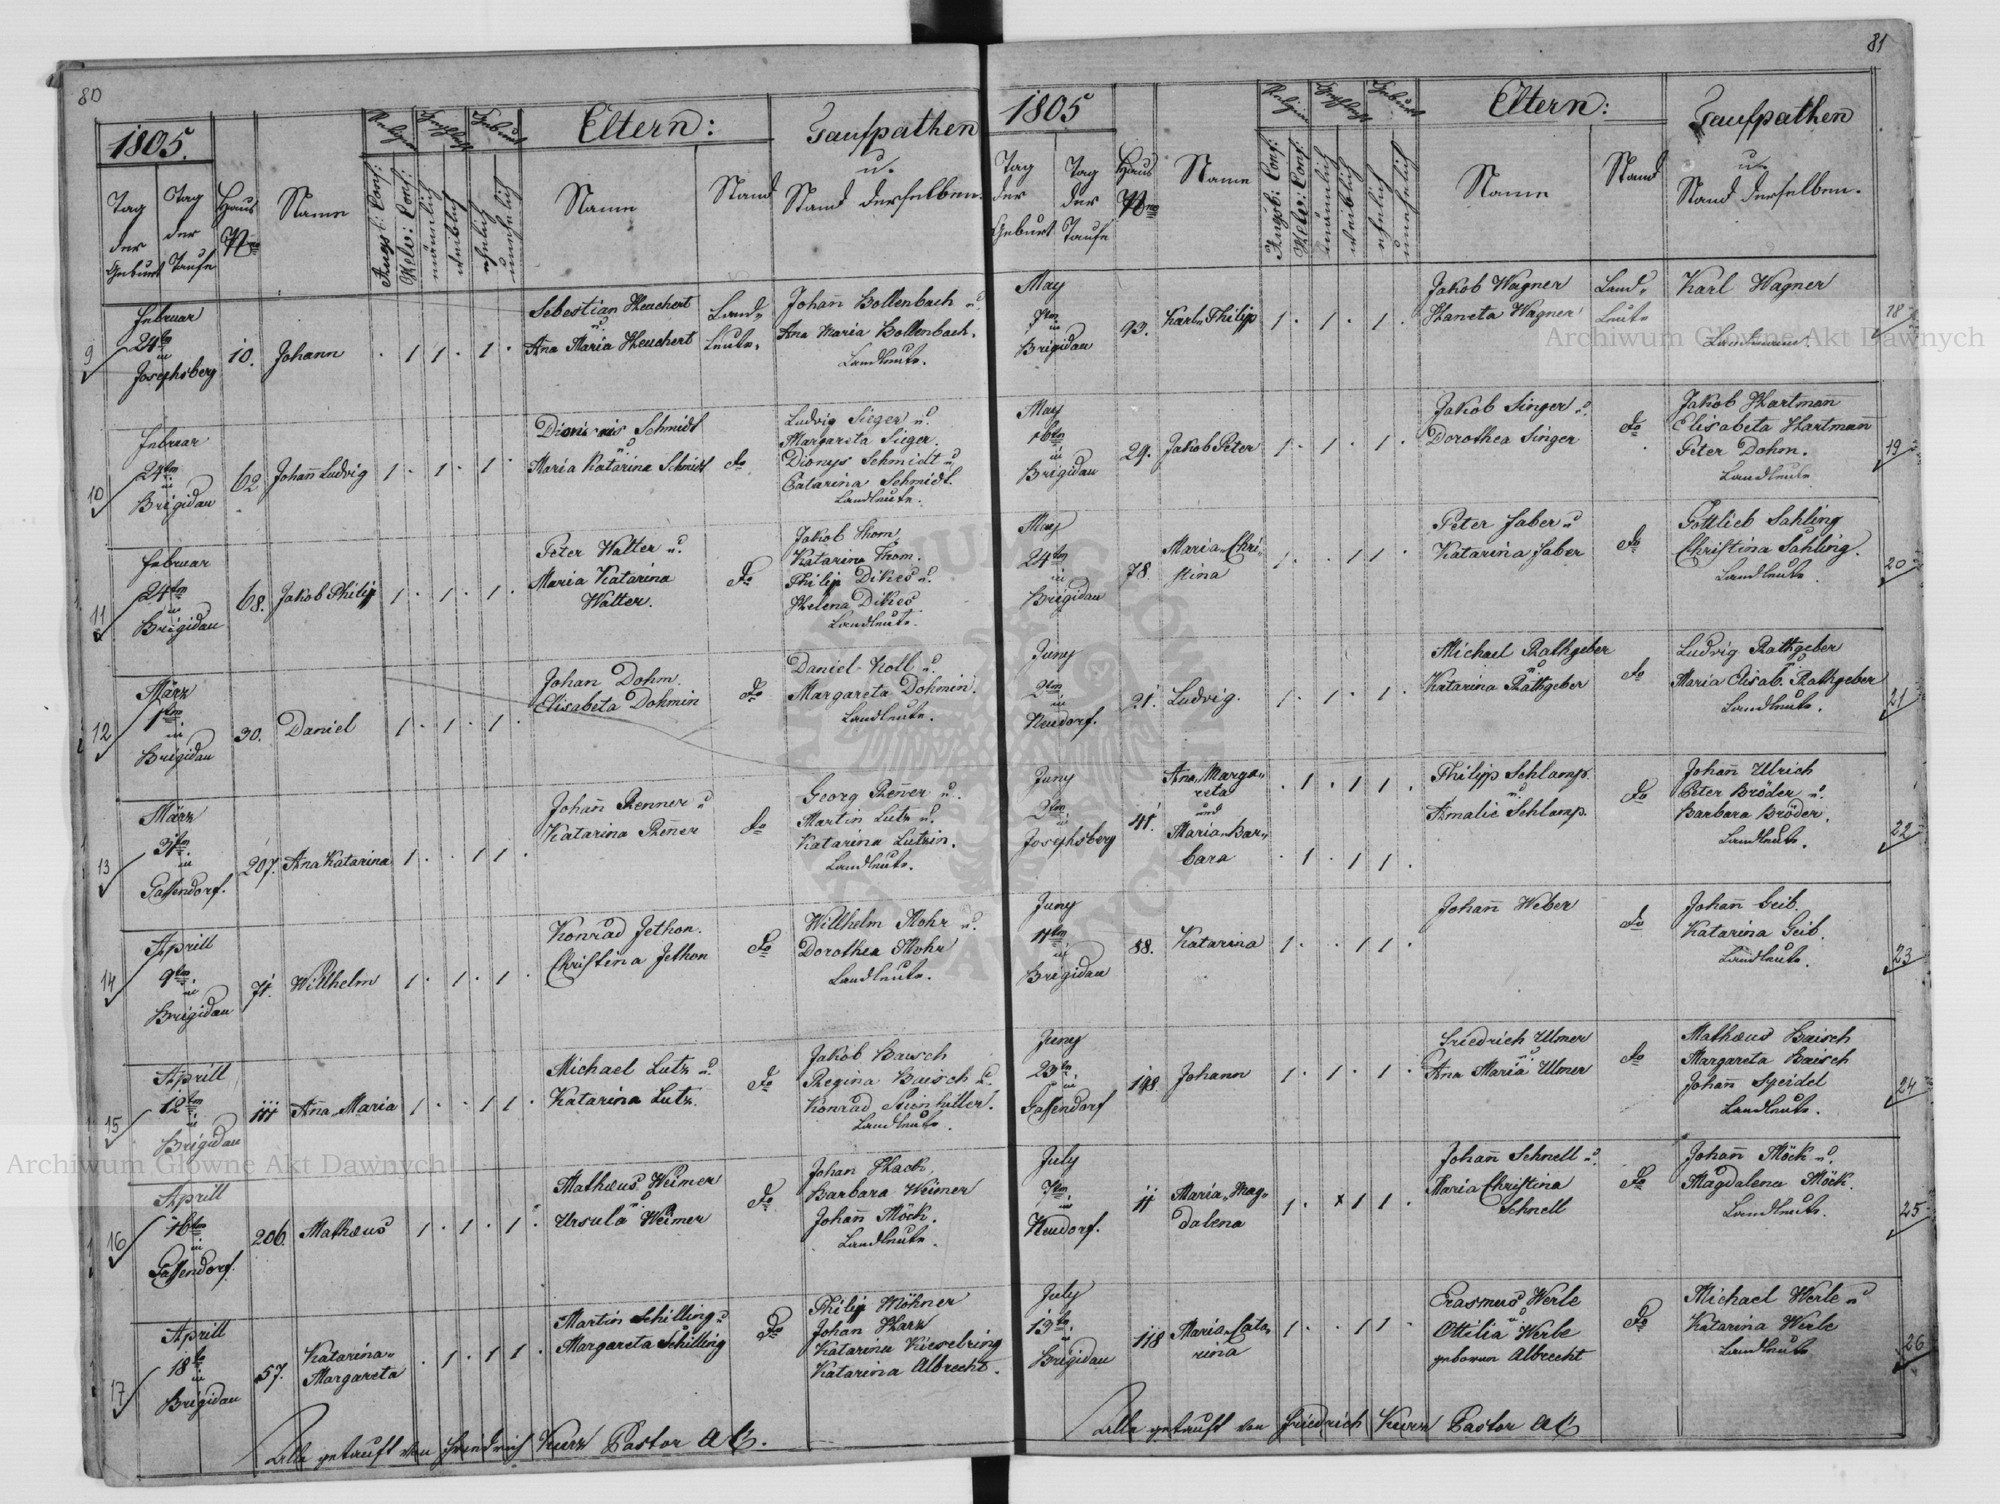 80
1805.
Religion
Geschlecht
Geburt
Eltern:
Taufpathen
u.
Stand derselben.
Tag der Geburt
Tag der Taufe
Haus Nro
Name
Augsb: Conf:
Helv: Conf:
mänlich
weiblich
ehelich
unehelich
Name
Stand
9
Februar
24tn
in
Josephsberg
10.
Johann
. 1 1 . 1 .
Sebestian Heuchert
u.
Ana Maria Heuchert
Land-
leute.
Johañ Bollenbach u.
Ana Maria Bollenbach.
Landleute.
10
Februar
24tn
in
Brigidau
62
Johañ Ludvig
1 . 1 . 1 .
Schmidt
u.
Maria Katarina Schmidt
do
Ludvig Sieger u.
Margareta Sieger.
Dionys Schmidt u.
Catarina Schmidt.
Landleute.
11
Februar
24tn
in
Brigidau
68.
Jakob Philip
1 . 1 . 1 .
Peter Walter u.
Maria Katarina
Walter.
do
Jakob Thom
Katarina Thom.
Philip Dikes u.
Helena Dikes
Landleute.
12
März
1tn
in
Brigidau
30.
Daniel
1 . 1 . 1 .
Johan Dohm.
Elisabeta Dohmin
do
Daniel Koll u.
Margareta Dohmin.
Landleute.
13
März
3tn
in
Gassendorf.
207.
Ana Katarina
1 . . 1 1 .
Johañ Renner u.
Katarina Reñer
do
Georg Reñer u.
Martin Lutz u.
Katarina Lutzin.
Landleute.
14
Aprill
9tn
in
Brigidau
71.
Willhelm
1 . 1 . 1 .
Konrad Jethon.
Christina Jethon
do
Willhelm Mohr u.
Dorothea Mohr
Landleute.
15
Aprill
12tn
in
Brigidau
111
Aña Maria
1 . . 1 1 .
Michael Lutz u.
Katarina Lutz.
do
Jakob Bausch
Regina Baisch u.
Konrad Steinhiller.
Landleute.
16
Aprill
16tn
in
Gassendorf.
206.
Mathæus
1 . 1 . 1 .
Mathæus Weimer
u.
Ursula Weimer
do
Johan Hack,
Barbara Weimer
Johañ Möck.
Landleute.
17
Aprill
18tn
in
Brigidau
57.
Katarina-
Margareta
. 1 . 1 1 .
Martin Schilling u.
Margareta Schilling
do
Philip Möhner
Johan Harz
Katarina Kieselring
Katarina Albrecht.
Alle getauft von Friedrich Kurz Pastor AC.
81
1805
Religion
Geschlecht
Geburt
Eltern:
Taufpathen
u.
Stand derselben.
Tag der Geburt
Tag der Taufe
Haus Nro
Name
Augsb: Conf:
Helv: Conf:
mänlich
weiblich
ehelich
unehelich
Name
Stand
May
7tn
in
Brigidau
93.
Karl Philip
1 . 1 . 1 .
Jakob Wagner
Haneta Wagner
Land-
leute
Karl Wagner
Landmann.
18
May
16tn
in
Brigidau
29.
Jakob Peter
1 . 1 . 1 .
Jakob Singer u.
Dorothea Singer
do
Jakob Hartman
Elisabeta Hartmañ
Peter Dohm.
Landleute
19
May
24tn
in
Brigidau
78.
Maria Chri-
stina
1 . . 1 1 .
Peter Faber u.
Katarina Faber
do
Gottlieb Sahling
Christina Sahling.
Landleute.
20
Juny
2tn
in
Neudorf.
21.
Ludvig.
1 . 1 . 1 .
Michael Rathgeber
u.
Katarina Rathgeber
do
Ludvig Rathgeber
u.
Maria Elisab. Rathgeber
Landleute.
21
Juny
2tn
in
Josephsberg
41.
Ana Marga-
reta
und
Maria Bar-
bara
. 1 . 1 1 .
. 1 . 1 1 .
Philipp Schlamp.
u.
Amalie Schlamp.
do
Johañ Ulrich
Peter Bröder u.
Barbara Bröder.
Landleute.
22
Juny
11tn
in
Brigidau
88.
Katarina
1 . . 1 1 .
Johañ Weber
do
Johañ Geib.
Katarina Geib.
Landleute.
23
Juny
23tn
in
Gassendorf
198.
Johann
1 . 1 . 1 .
Friedrich Ulmer
u.
Ana Maria Ulmer
do
Mathæus Baisch
Margareta Baisch
Johañ Speidel
Landleute.
24
July
7tn
in
Neudorf.
11
Maria Mag-
dalena
1 . x 1 1 .
Johañ Schnell u.
Maria Christina
Schnell
do
Johañ Möck u.
Magdalena Möck.
Landleute.
25
July
13tn
in
Brigidau
118
Maria Cata-
rina
1 . . 1 1 .
Erasmus Werle
u.
Ottilia Werle
geboren Albrecht
do
Michael Werle u.
Katarina Werle
Landleute
26
Alle getauft von Friedrich Kurz Pastor AC
Archiwum Główne Akt Dawnych
Archiwum Główne Akt Dawnych